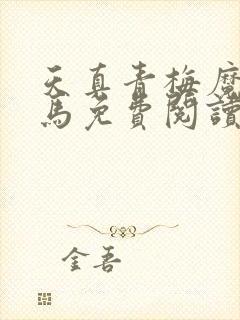 天真青梅魔
馬免費閱讀
金吾